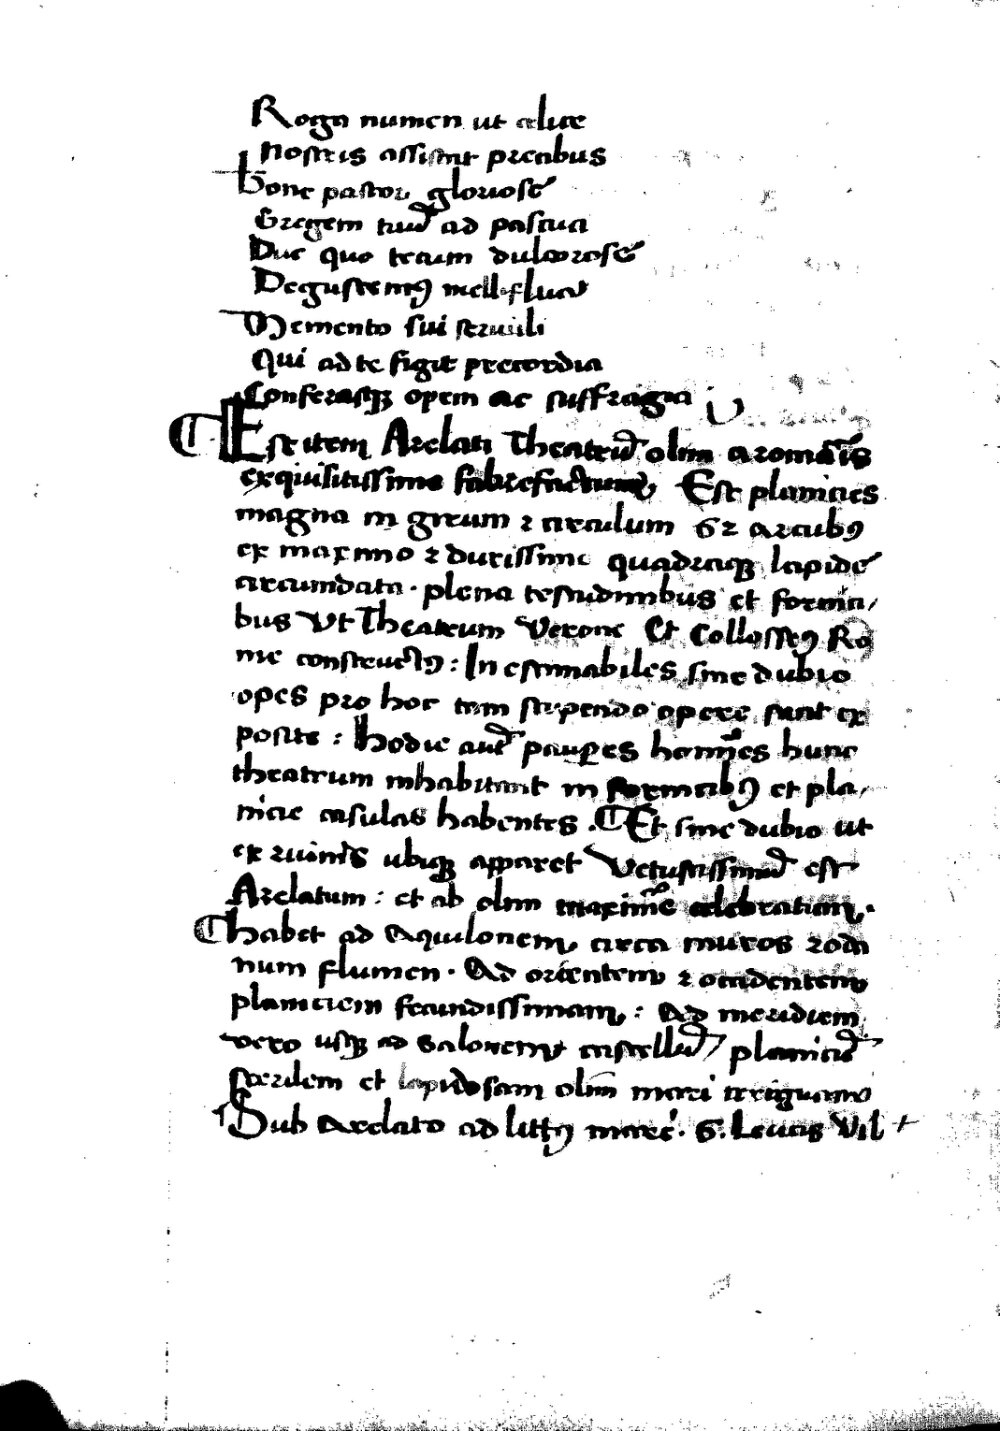 Roga numen ut celice
nostris assistat precibus
bone pastor gloriose
Gregem tuū ad pascua
Duc quo tecum dulcorose
Degustemꝰ melliflua
Memento sui servuli
Qui ad te figit precordia
Conferasqꝫ opem ac suffragia
Est item Arelati Theatrū olim a romāis
exquisitissime fabrefactum Est planicies
magna in girum ⁊ circulum 62 arcubꝰ
ex maximo ⁊ durissimo quadratoqꝫ lapide
circumdata · plena testudinibus et forma/
bus Ut Theatrum Verone Et Collosseꝰ Ro
me constructꝰ : In estimabiles sine dubio
opes pro hoc tam stupendo opere sunt ex
posite : Hodie autē pauperes homīes hunc
theatrum inhabitant in fornicibꝰ et pla/
nicie casulas habentes . Et sine dubio ut
ex ruinis ubiqꝫ apparet Vetustissimū est
Arelatum : et ab olim maxime celebratum .
habet ad Aquilonem circa muros roda
num flumen · Ad orientem ⁊ occidentem
planiciem fecundissimam : Ad meridiem
vero usqꝫ ad Salonem castellū / planiciē
sterilem et lapidosam olim mari irriguam
Sub Arelato ad littꝰ mare · 6 . Leucis Vil